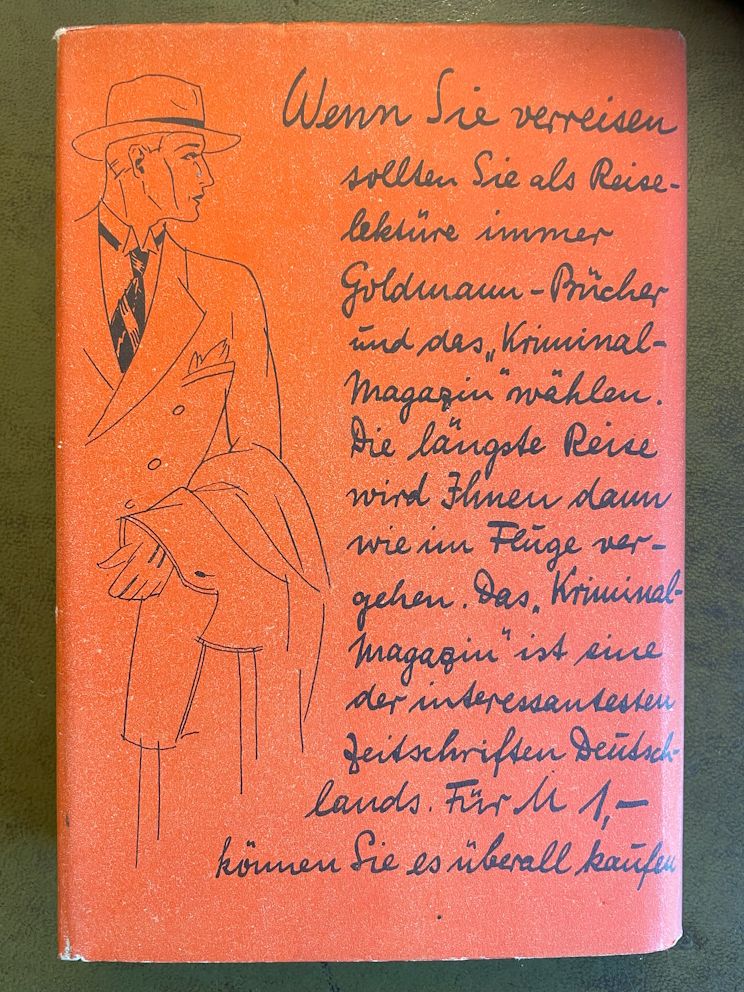 Wenn Sie verreisen
sollten Sie als Reise-
lektüre immer
Goldmann-Bücher
und das „Kriminal-
Magazin" wählen.
Die längste Reise
wird Ihnen dann
wie im Fluge ver-
gehen. Das „Kriminal-
Magazin" ist eine
der interessantesten
Zeitschriften Deutsch-
lands. Für M 1,–
können Sie es überall kaufen